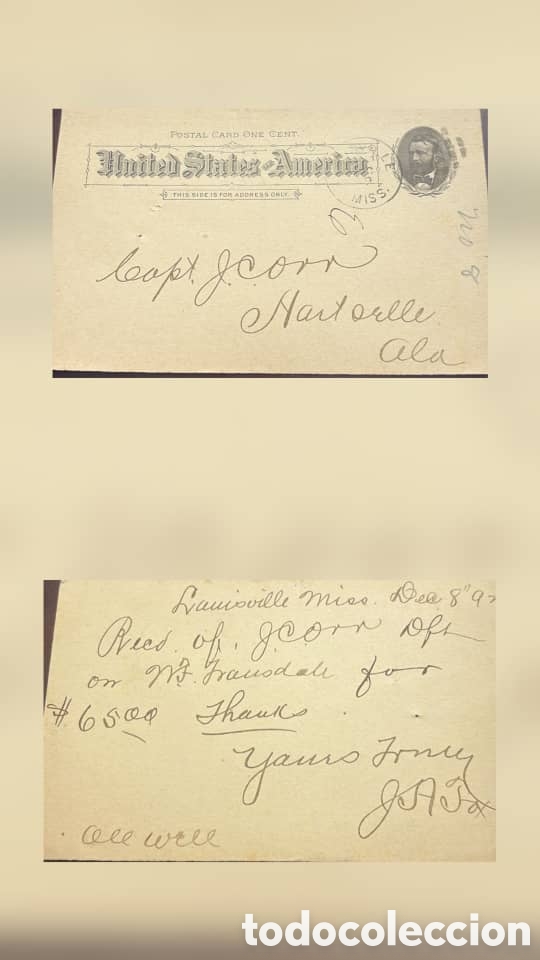 POSTAL CARD ONE CENT.
United States of America
THIS SIDE IS FOR ADDRESS ONLY.
MISS.
Capt. J.C. Orr
Hartselle
Ala
Louisville Miss. Dec 8" 92
Recd. of J.C. Orr Dft
on for
$6500 Thanks
Yours Truly
J A Fox
All well
todocoleccion